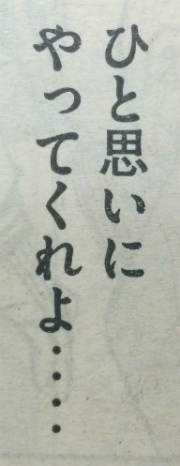 ひと思いに
やってくれよ‥‥